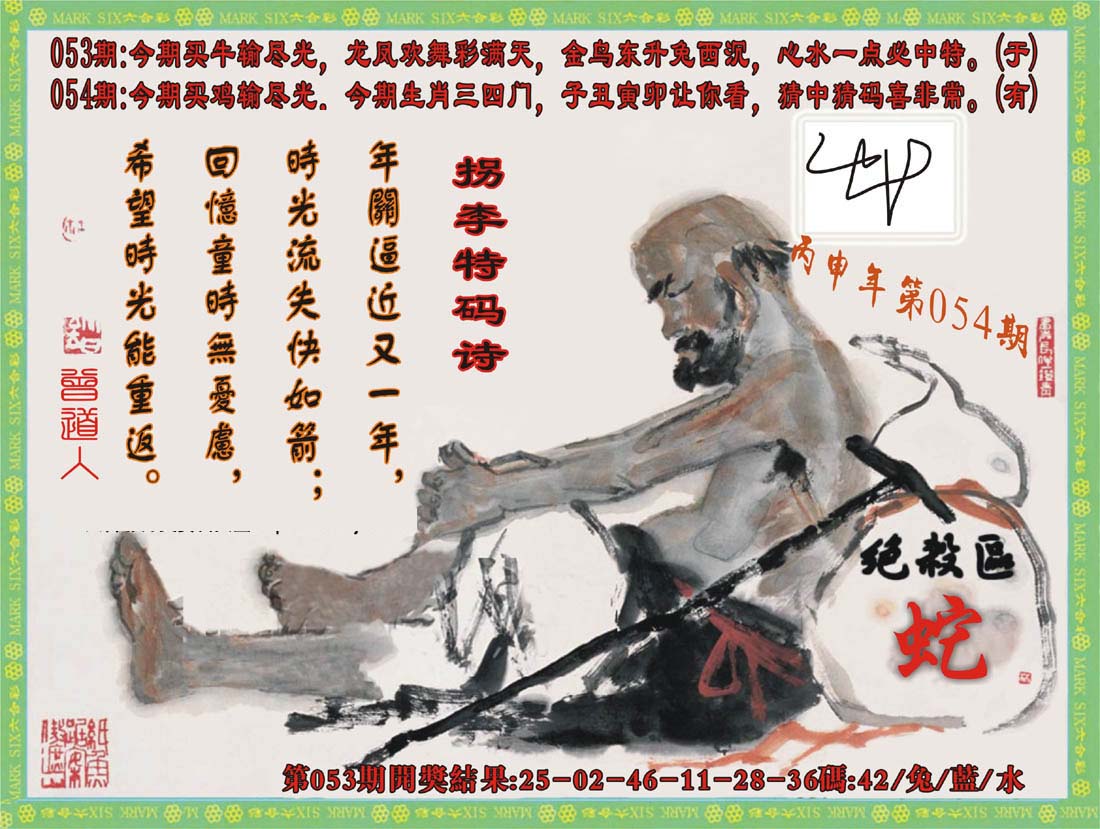 MARK SIX六合彩
053期:今期买牛输尽光，龙凤欢舞彩满天，金鸟东升兔西沉，心水一点必中特。(于)
054期:今期买鸡输尽光．今期生肖三四门，子丑寅卯让你看，猜中猜码喜非常。(有)
拐李特码诗
年關逼近又一年，
時光流失快如箭；
回憶童時無憂慮，
希望時光能重返。
曾道人
丙申年第054期
绝殺區
蛇
第053期開獎結果:25-02-46-11-28-36碼:42/兔/藍/水